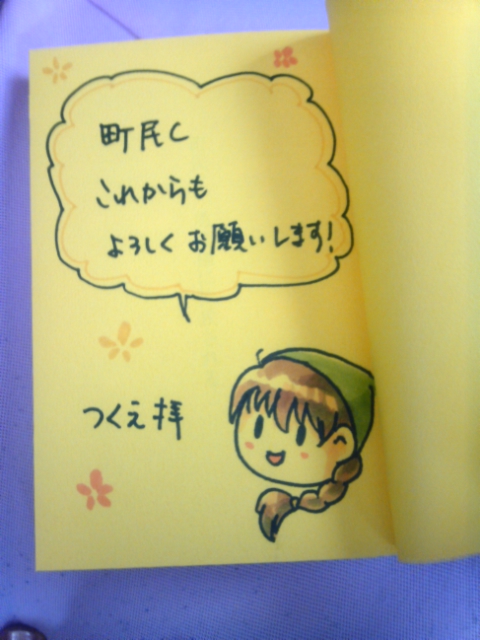 町民C
これからも
よろしくお願いします!
つくえ拝